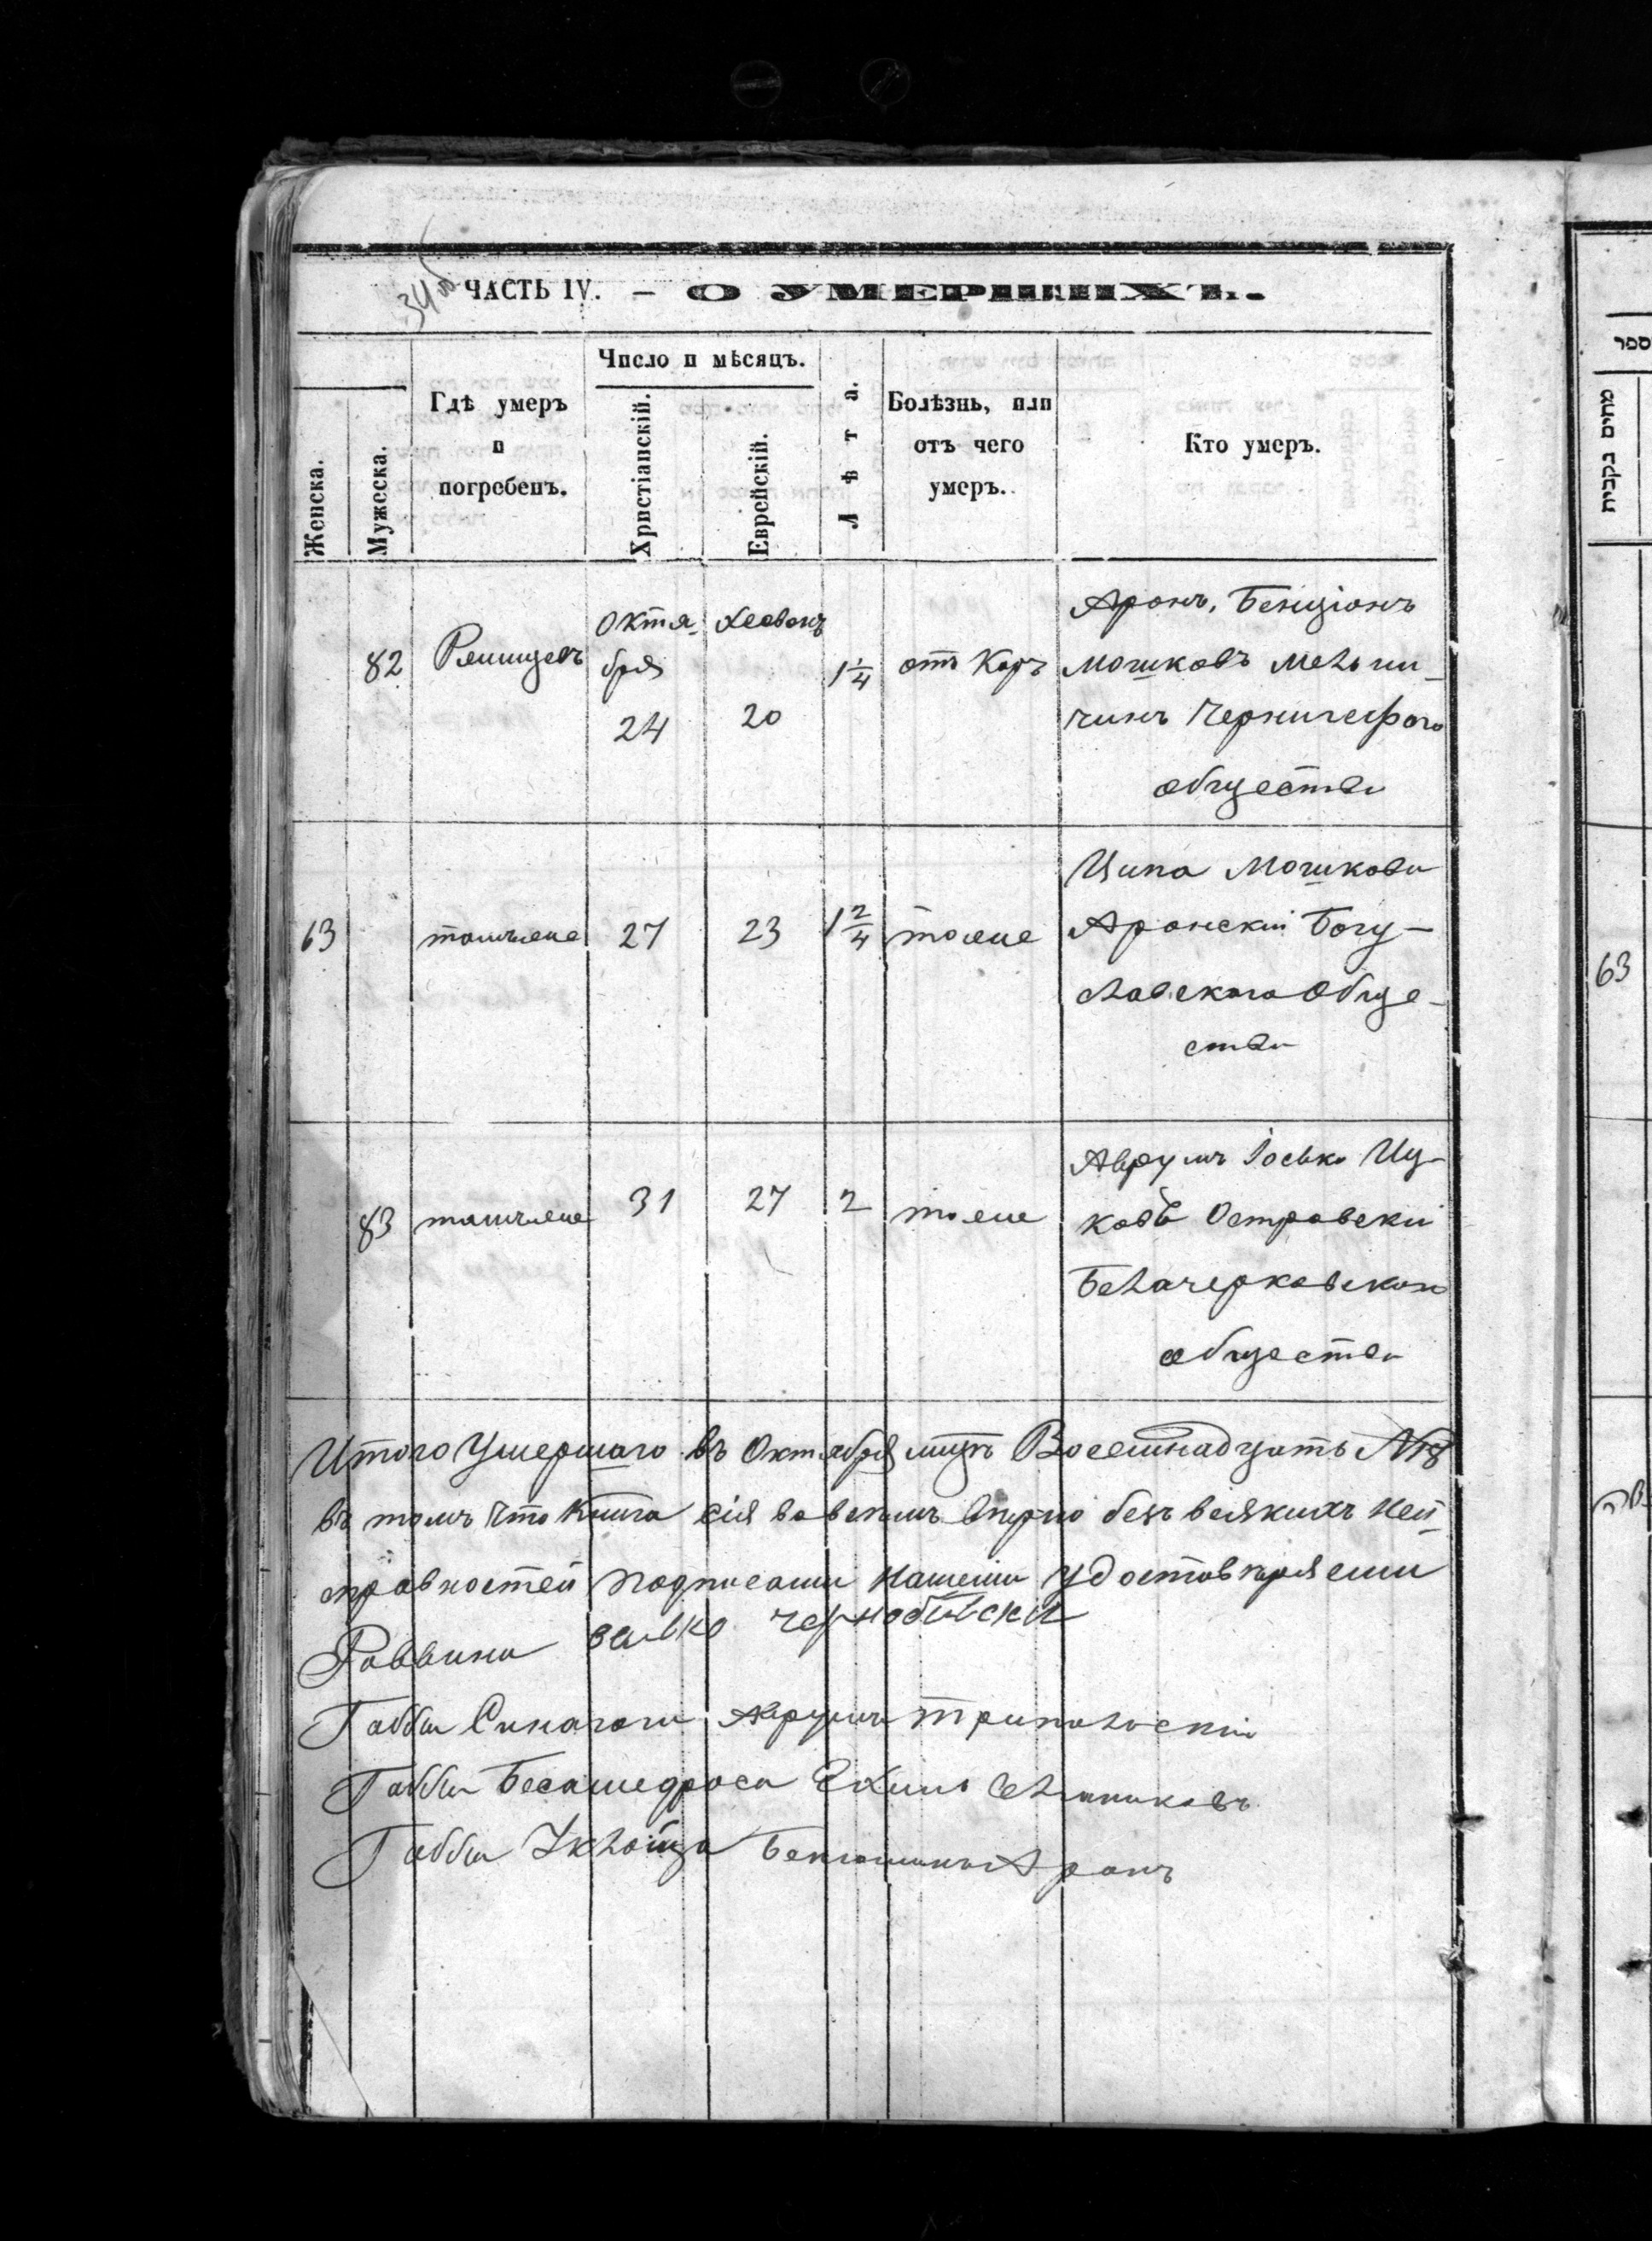 34 об
ЧАСТЬ IV. – О УМЕРШИХЪ.
Женска.
Мужеска.
Гдѣ умеръ
и
погребенъ.
Число и мѣсяцъ.
Христіанскій.
Еврейскій.
Лѣта.
Болѣзнь, или
отъ чего
умеръ.
Кто умеръ.
82
Ржищевъ
Октя-
бря
24
Хесвонъ
20
1 1/4
отъ Коръ
Аронъ, Бенціонъ
Мошковъ Мельни-
чинъ
общества
63
тамъжепе
27
23
1 2/4
тоже
Ципа Мошкова
Аронскій Богу-
славскаго Обще-
ства
83
тамъжепе
31
27
2
тоже
Аврумъ Іоська Иц-
ковъ Островскій
Белачерковского
общества
Итого Умершаго въ Октябрѣ мцѣ Восемнадцать №18
въ томъ что Книга сія вовсемъ вѣрно безъ всякихъ неи-
справностей подписами нашеми удостовѣряеми
Раввина Чернобивски
Габби Синагоги Аврумъ Трипольскій
Габби Бесамедроса
Габби Аронъ
ספר
מתים נקבות
63